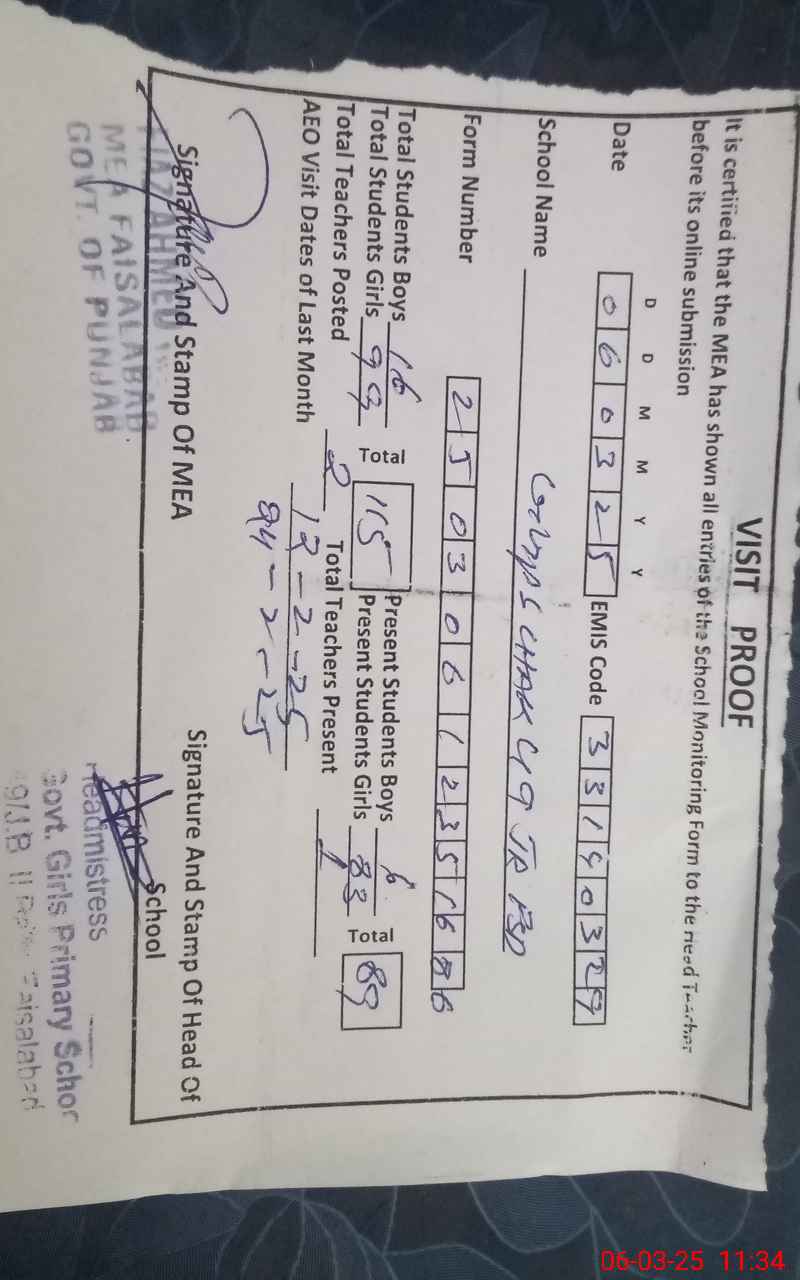 VISIT PROOF
It is certified that the MEA has shown all entries of the School Monitoring Form to the Head Teacher
before its online submission
D D M M Y Y
Date 0 6 0 3 2 5 EMIS Code 3 3 1 4 0 3 2 9
School Name CHAK 49 JB FSD
Form Number 2 5 0 3 0 6 1 2 3 5 1 6 8 6
Total Students Boys 16 Present Students Boys 6
Total Students Girls 99 Total 115 Present Students Girls 83 Total 89
Total Teachers Posted 2 Total Teachers Present 1
AEO Visit Dates of Last Month 12-2-25
24-2-25
Signature And Stamp Of MEA
Signature And Stamp Of Head Of
School
AHMED
MEA FAISALABAD
GOVT. OF PUNJAB
Headmistress
Govt. Girls Primary School
Faisalabad
06-03-25 11:34